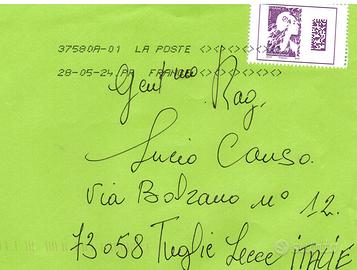 37580A-01 LA POSTE
28-05-24 PP FRANCE
Gent mo Rag.
Lucio Causo.
Via Bolzano n° 12.
73058 Tuglie Lecce ITALIE